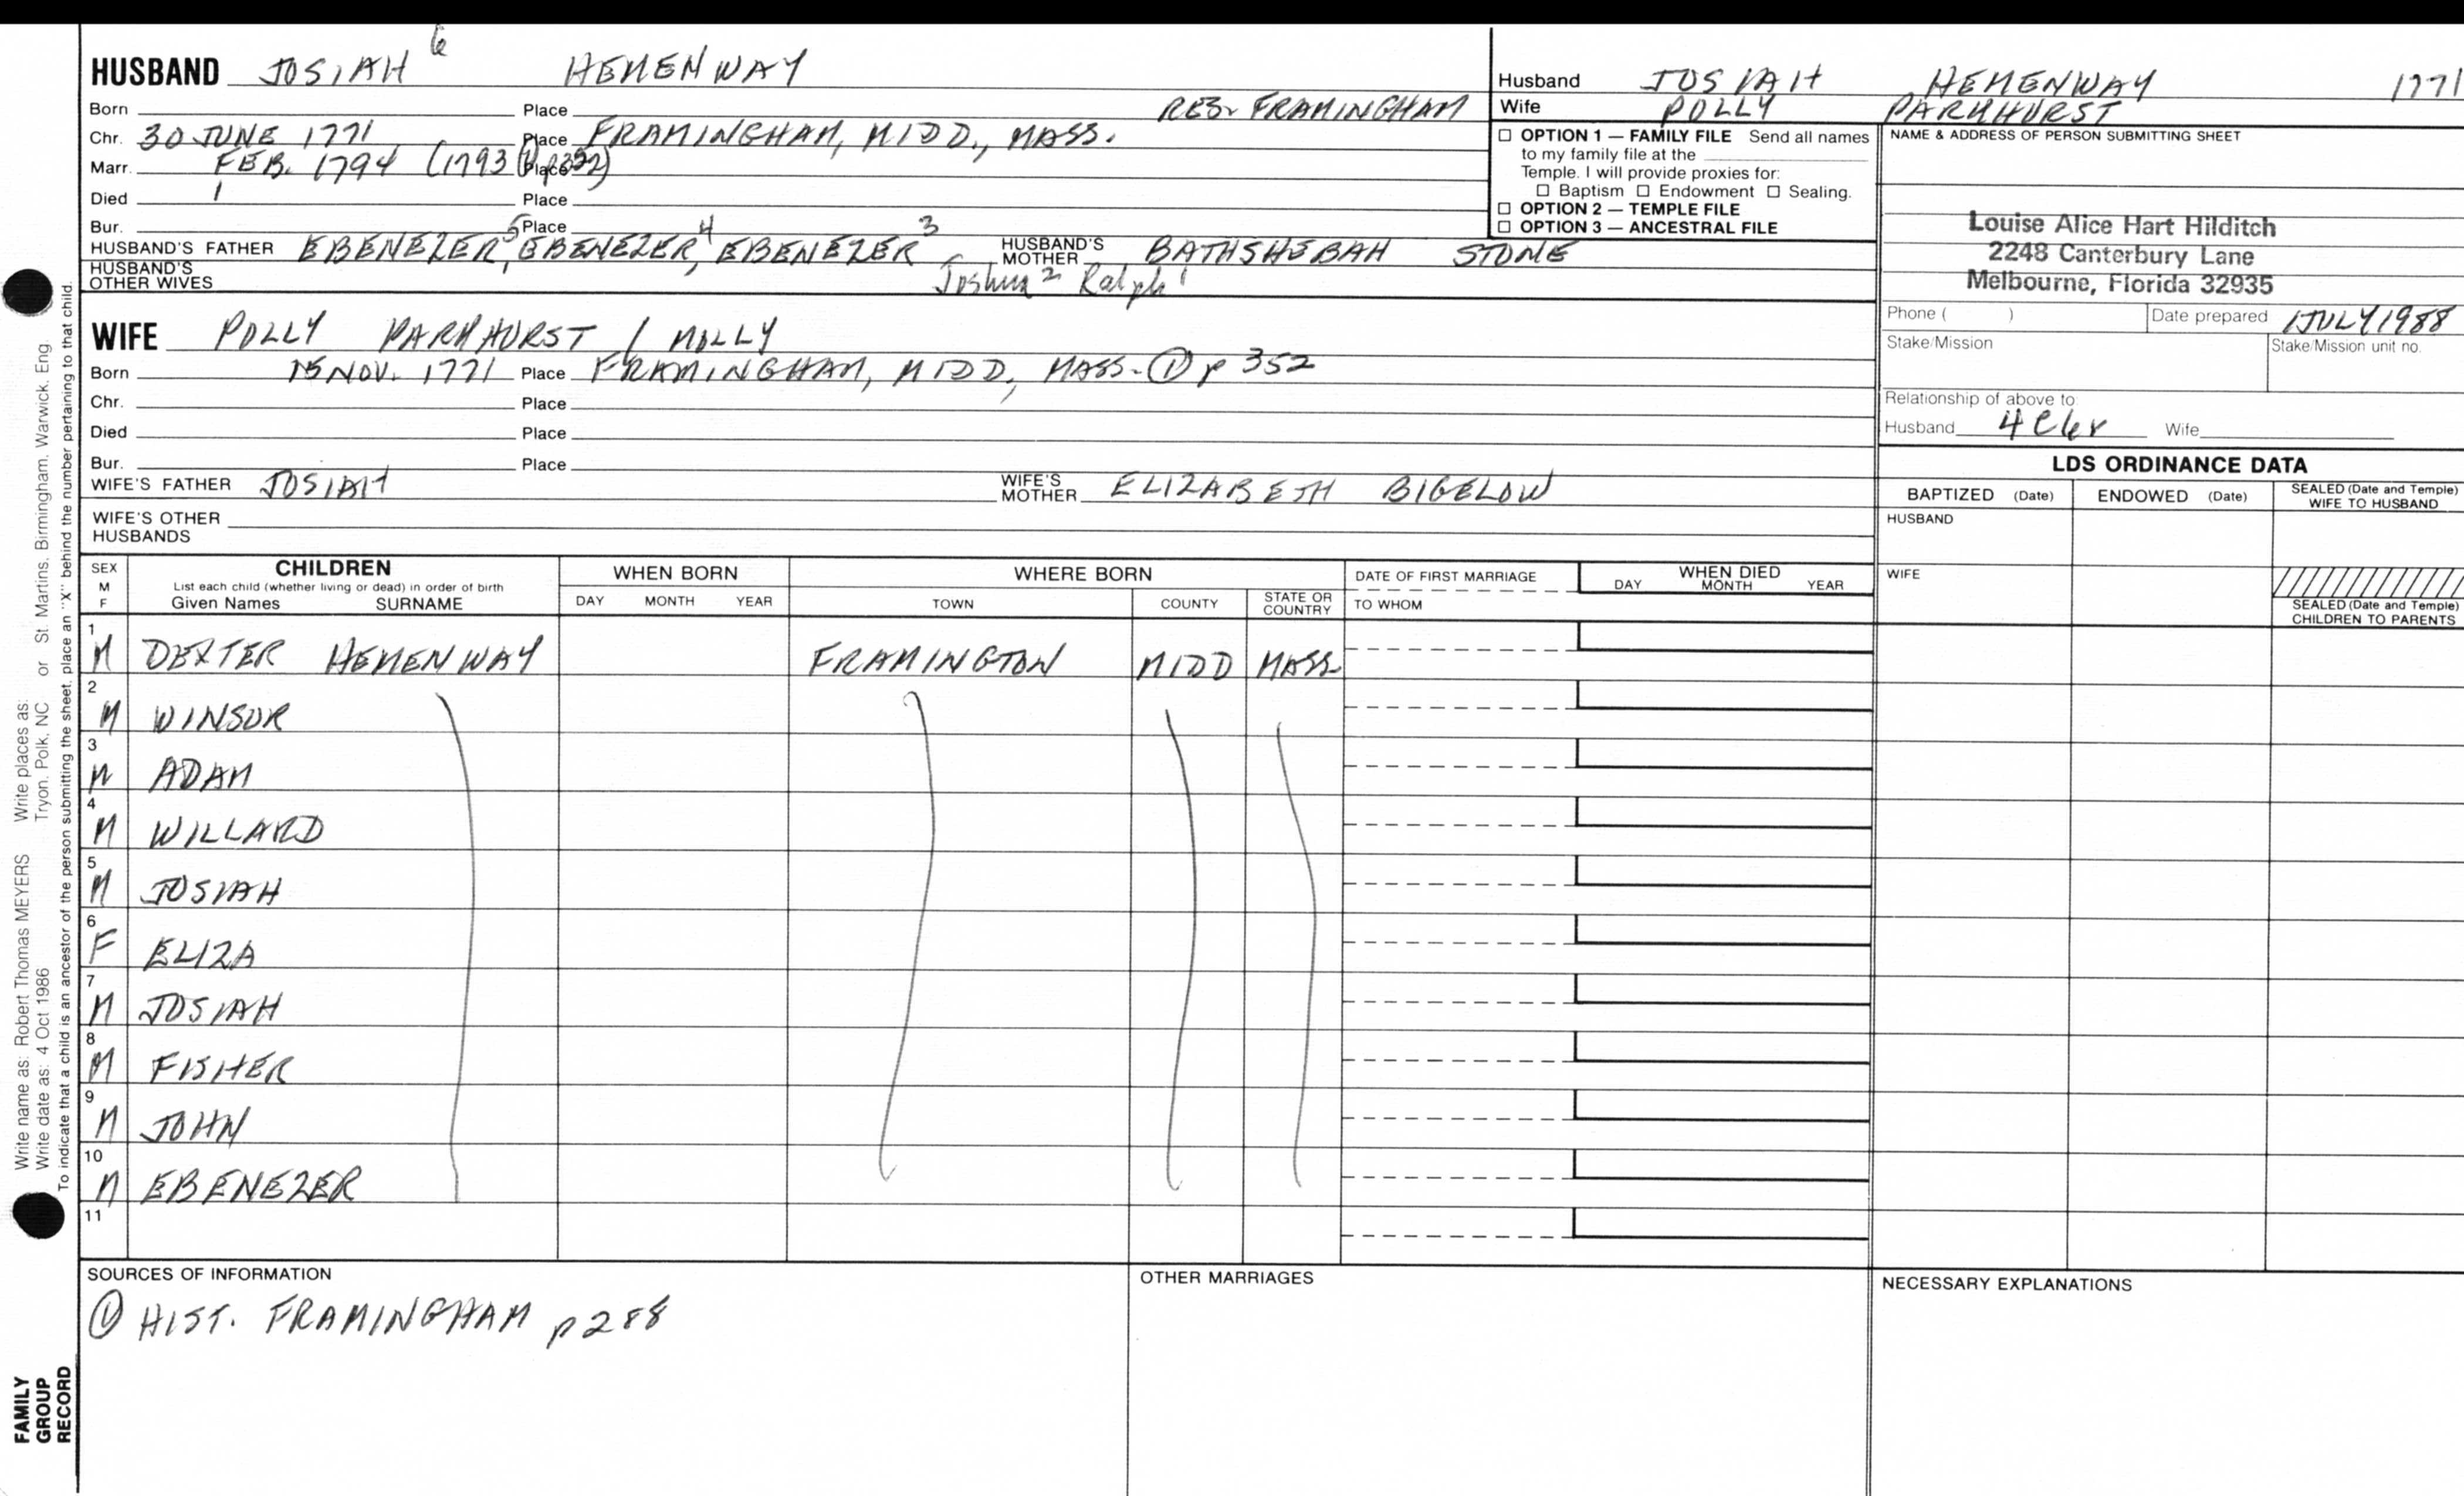 HUSBAND JOSIAH 6 HEMENWAY
Born Place RES. FRAMINGHAM
Chr. 30 JUNE 1771 Place FRAMINGHAM, MIDD., MASS.
Marr. FEB. 1794 (1793 ① p352) Place
Died Place
Bur. Place
HUSBAND'S FATHER EBENEZER 5, EBENEZER 4, EBENEZER 3 HUSBAND'S MOTHER BATHSHEBAH STONE
HUSBAND'S OTHER WIVES Joshua 2 Ralph 1
WIFE POLLY PARKHURST / MOLLY
Born 15 NOV. 1771 Place FRAMINGHAM, MIDD, MASS. ① p 352
Chr. Place
Died Place
Bur. Place
WIFE'S FATHER JOSIAH WIFE'S MOTHER ELIZABETH BIGELOW
WIFE'S OTHER HUSBANDS
Husband JOSIAH HEMENWAY 1771
Wife POLLY PARKHURST
☐ OPTION 1 — FAMILY FILE Send all names
to my family file at the
Temple. I will provide proxies for:
☐ Baptism ☐ Endowment ☐ Sealing.
☐ OPTION 2 — TEMPLE FILE
☐ OPTION 3 — ANCESTRAL FILE
NAME & ADDRESS OF PERSON SUBMITTING SHEET
Louise Alice Hart Hilditch
2248 Canterbury Lane
Melbourne, Florida 32935
Phone ( ) Date prepared 1 JULY 1988
Stake/Mission Stake/Mission unit no.
Relationship of above to:
Husband 4C6r Wife
LDS ORDINANCE DATA
BAPTIZED (Date) ENDOWED (Date) SEALED (Date and Temple) WIFE TO HUSBAND
HUSBAND
WIFE
SEALED (Date and Temple) CHILDREN TO PARENTS
SEX M F CHILDREN WHEN BORN WHERE BORN DATE OF FIRST MARRIAGE WHEN DIED
List each child (whether living or dead) in order of birth
Given Names SURNAME DAY MONTH YEAR TOWN COUNTY STATE OR COUNTRY TO WHOM DAY MONTH YEAR
1 M DEXTER HEMENWAY FRAMINGTON MIDD MASS.
2 M WINSOR
3 M ADAM
4 M WILLARD
5 M JOSIAH
6 F ELIZA
7 M JOSIAH
8 M FISHER
9 M JOHN
10 M EBENEZER
11
SOURCES OF INFORMATION
① HIST. FRAMINGHAM p288
OTHER MARRIAGES
NECESSARY EXPLANATIONS
Write name as: Robert Thomas MEYERS Write places as:
Write date as: 4 Oct 1986 Tryon, Polk, NC or St. Martins, Birmingham, Warwick, Eng.
To indicate that a child is an ancestor of the person submitting the sheet, place an "X" behind the number pertaining to that child.
FAMILY
GROUP
RECORD